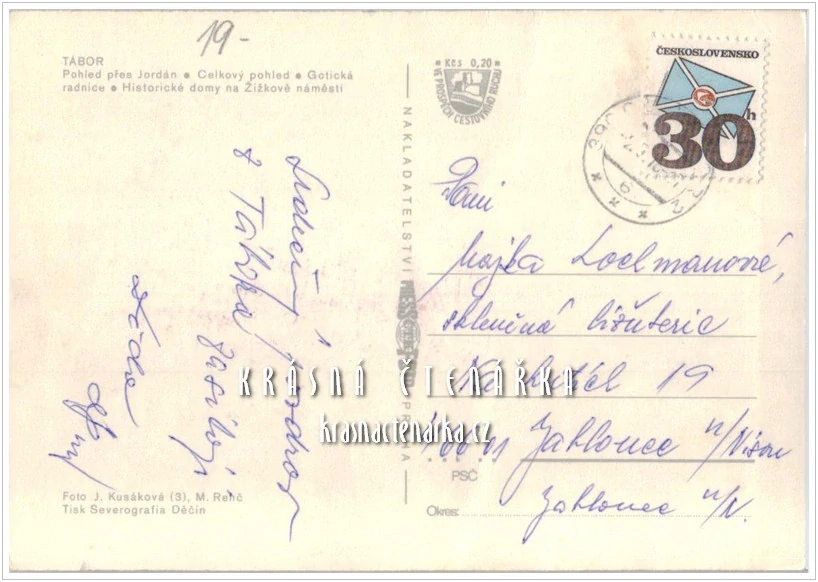 19-
TÁBOR
Pohled přes Jordán ● Celkový pohled ● Gotická
radnice ● Historické domy na Žižkově náměstí
Kčs 0,20
VE PROSPĚCH CESTOVNÍHO RUCHU
ČESKOSLOVENSKO
30h
NAKLADATELSTVÍ
Srdečný pozdrav
z Tábora
Paní
skleněná bižuterie
19
466 01 Jablonec n/Nisou
PSČ
Okres: Jablonec n/N.
KRÁSNÁ ČTENÁŘKA
krasnactenarka.cz
Foto J. Kusáková (3), M. Renč
Tisk Severografia Děčín